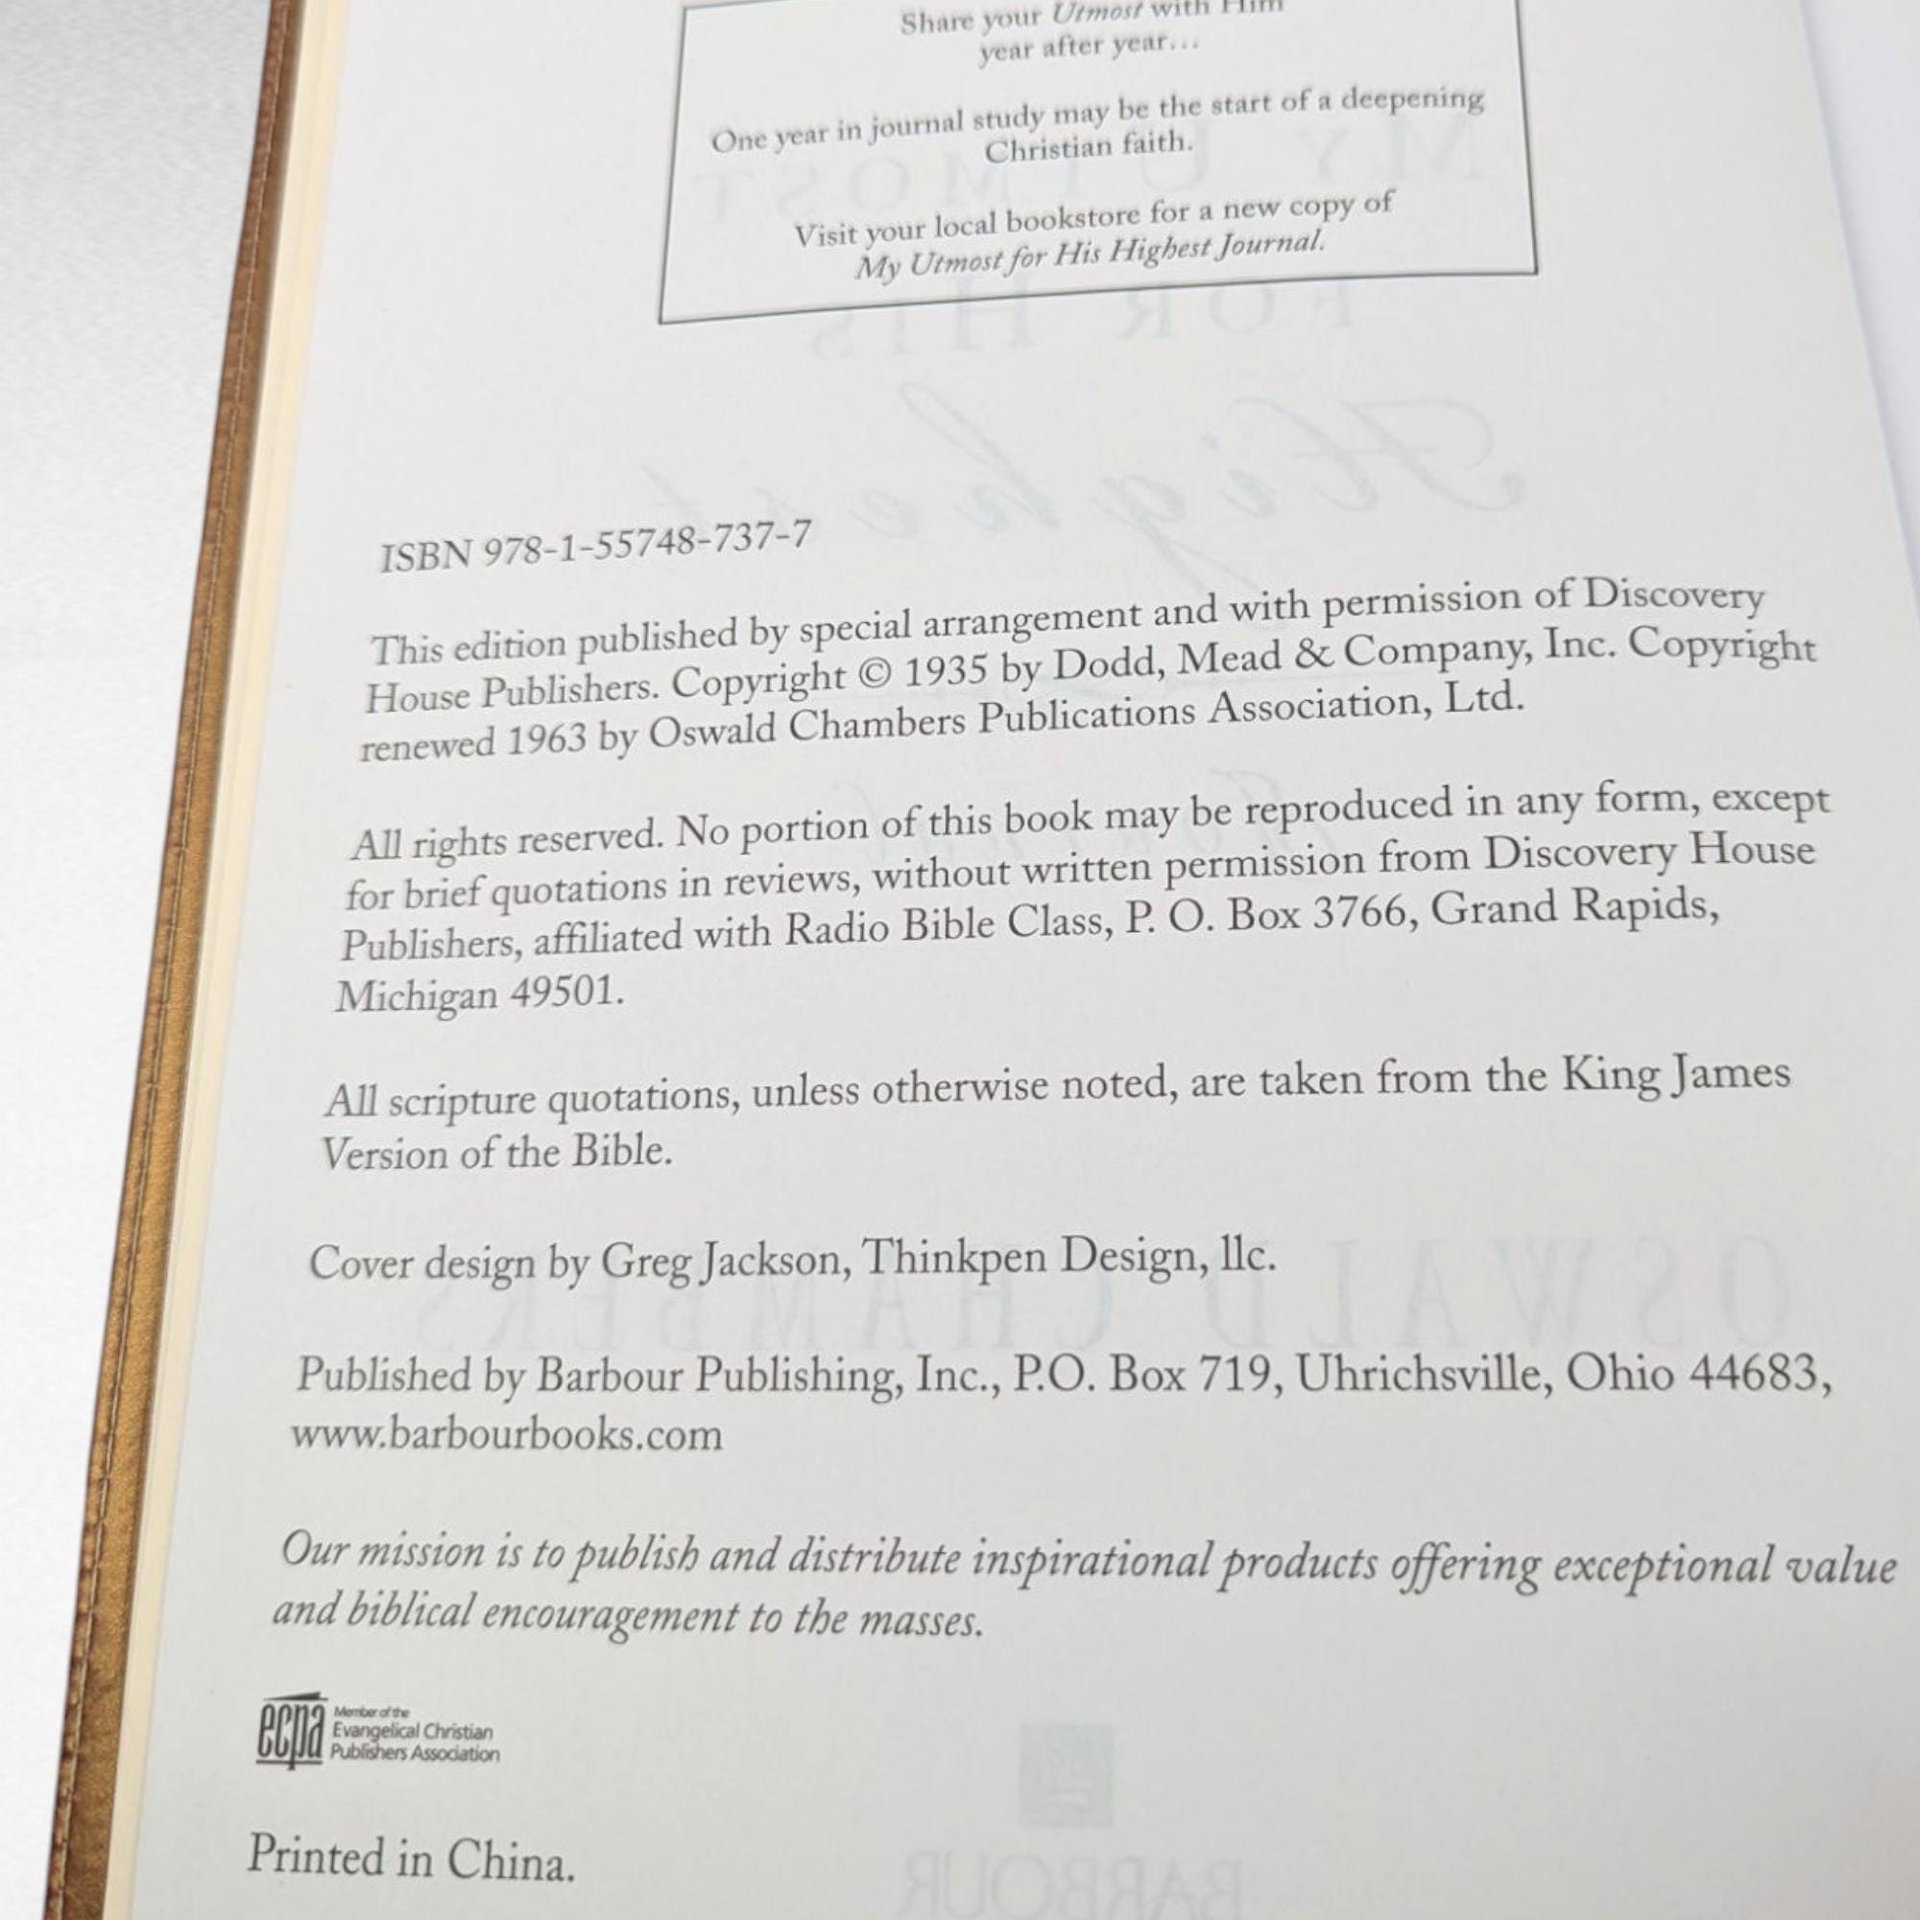 Share your Utmost with Him
year after year...
One year in journal study may be the start of a deepening
Christian faith.
Visit your local bookstore for a new copy of
My Utmost for His Highest Journal.
ISBN 978-1-55748-737-7
This edition published by special arrangement and with permission of Discovery
House Publishers. Copyright © 1935 by Dodd, Mead & Company, Inc. Copyright
renewed 1963 by Oswald Chambers Publications Association, Ltd.
All rights reserved. No portion of this book may be reproduced in any form, except
for brief quotations in reviews, without written permission from Discovery House
Publishers, affiliated with Radio Bible Class, P. O. Box 3766, Grand Rapids,
Michigan 49501.
All scripture quotations, unless otherwise noted, are taken from the King James
Version of the Bible.
Cover design by Greg Jackson, Thinkpen Design, llc.
Published by Barbour Publishing, Inc., P.O. Box 719, Uhrichsville, Ohio 44683,
www.barbourbooks.com
Our mission is to publish and distribute inspirational products offering exceptional value
and biblical encouragement to the masses.
ecpa
Member of the
Evangelical Christian
Publishers Association
Printed in China.